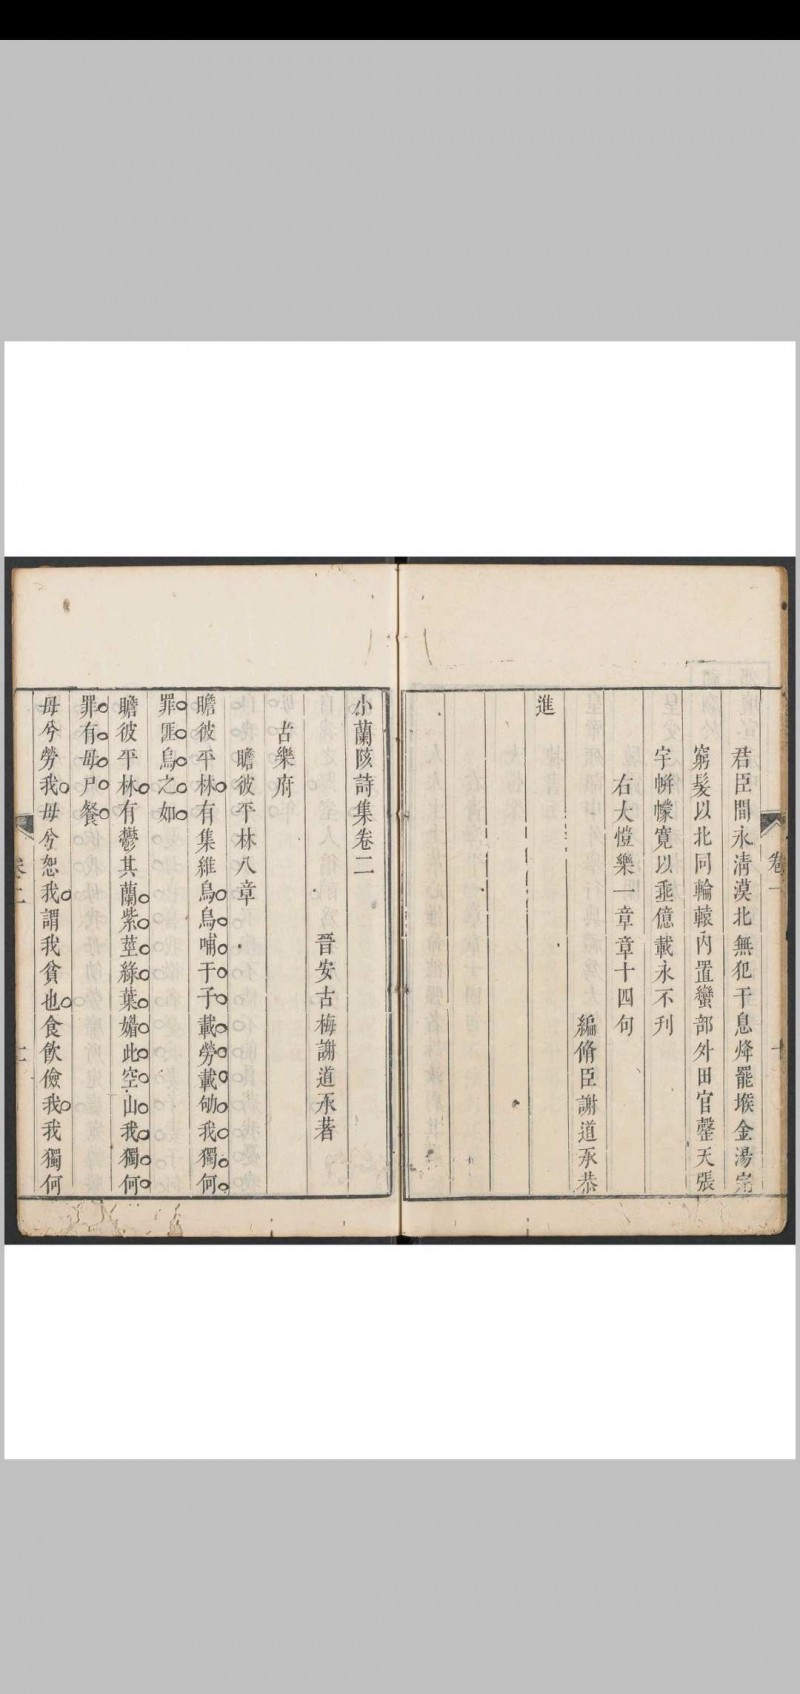 君臣間永清漠北無犯干息烽罷堠金湯完
窮髮以北同輪轅內置蠻部外田官罄天張
宇帡幪寛以乘億載永不刋
右大愷樂一章章十四句
編脩臣謝道承恭
進
卷一
十
小蘭陔詩集卷二
晉安古梅謝道承著
古樂府
瞻彼平林八章
瞻彼平林有集維烏烏哺于子載勞載劬我獨何
罪匪烏之如
瞻彼平林有鬱其蘭紫莖綠葉婚此空山我獨何
罪有母尸餐
母兮勞我母兮恕我謂我貧也食飲儉我我獨何
卷二